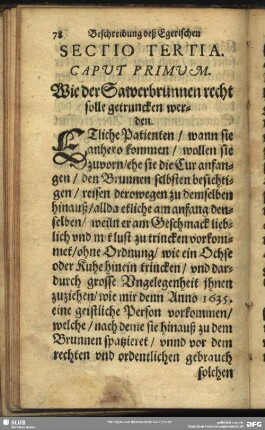 78 Beschreibung deß Egerischen
SECTIO TERTIA.
CAPUT PRIMUM.
Wie der Sawerbrunnen recht
solle getruncken wer-
den.
ETliche Patienten / wann sie
anhero kommen / wollen sie
zuvorn / ehe sie die Cur anfan-
gen / den Brunnen selbsten besichti-
gen / reisen derowegen zu demselben
hinauß / allda etliche am anfang den-
selben / weiln er am Geschmack lieb-
lich vnd mit lust zu trincken vorkom-
met / ohne Ordnung / wie ein Ochse
oder Kuhe hinein trincken / vnd dar-
durch grosse Vngelegenheit jhnen
zuziehen / wie mir denn Anno 1635.
eine geistliche Person vorkommen /
welche / nach deme sie hinauß zu dem
Brunnen spatzieret / vnnd vor dem
rechten vnd ordentlichen gebrauch
solchen
SLUB
DFG